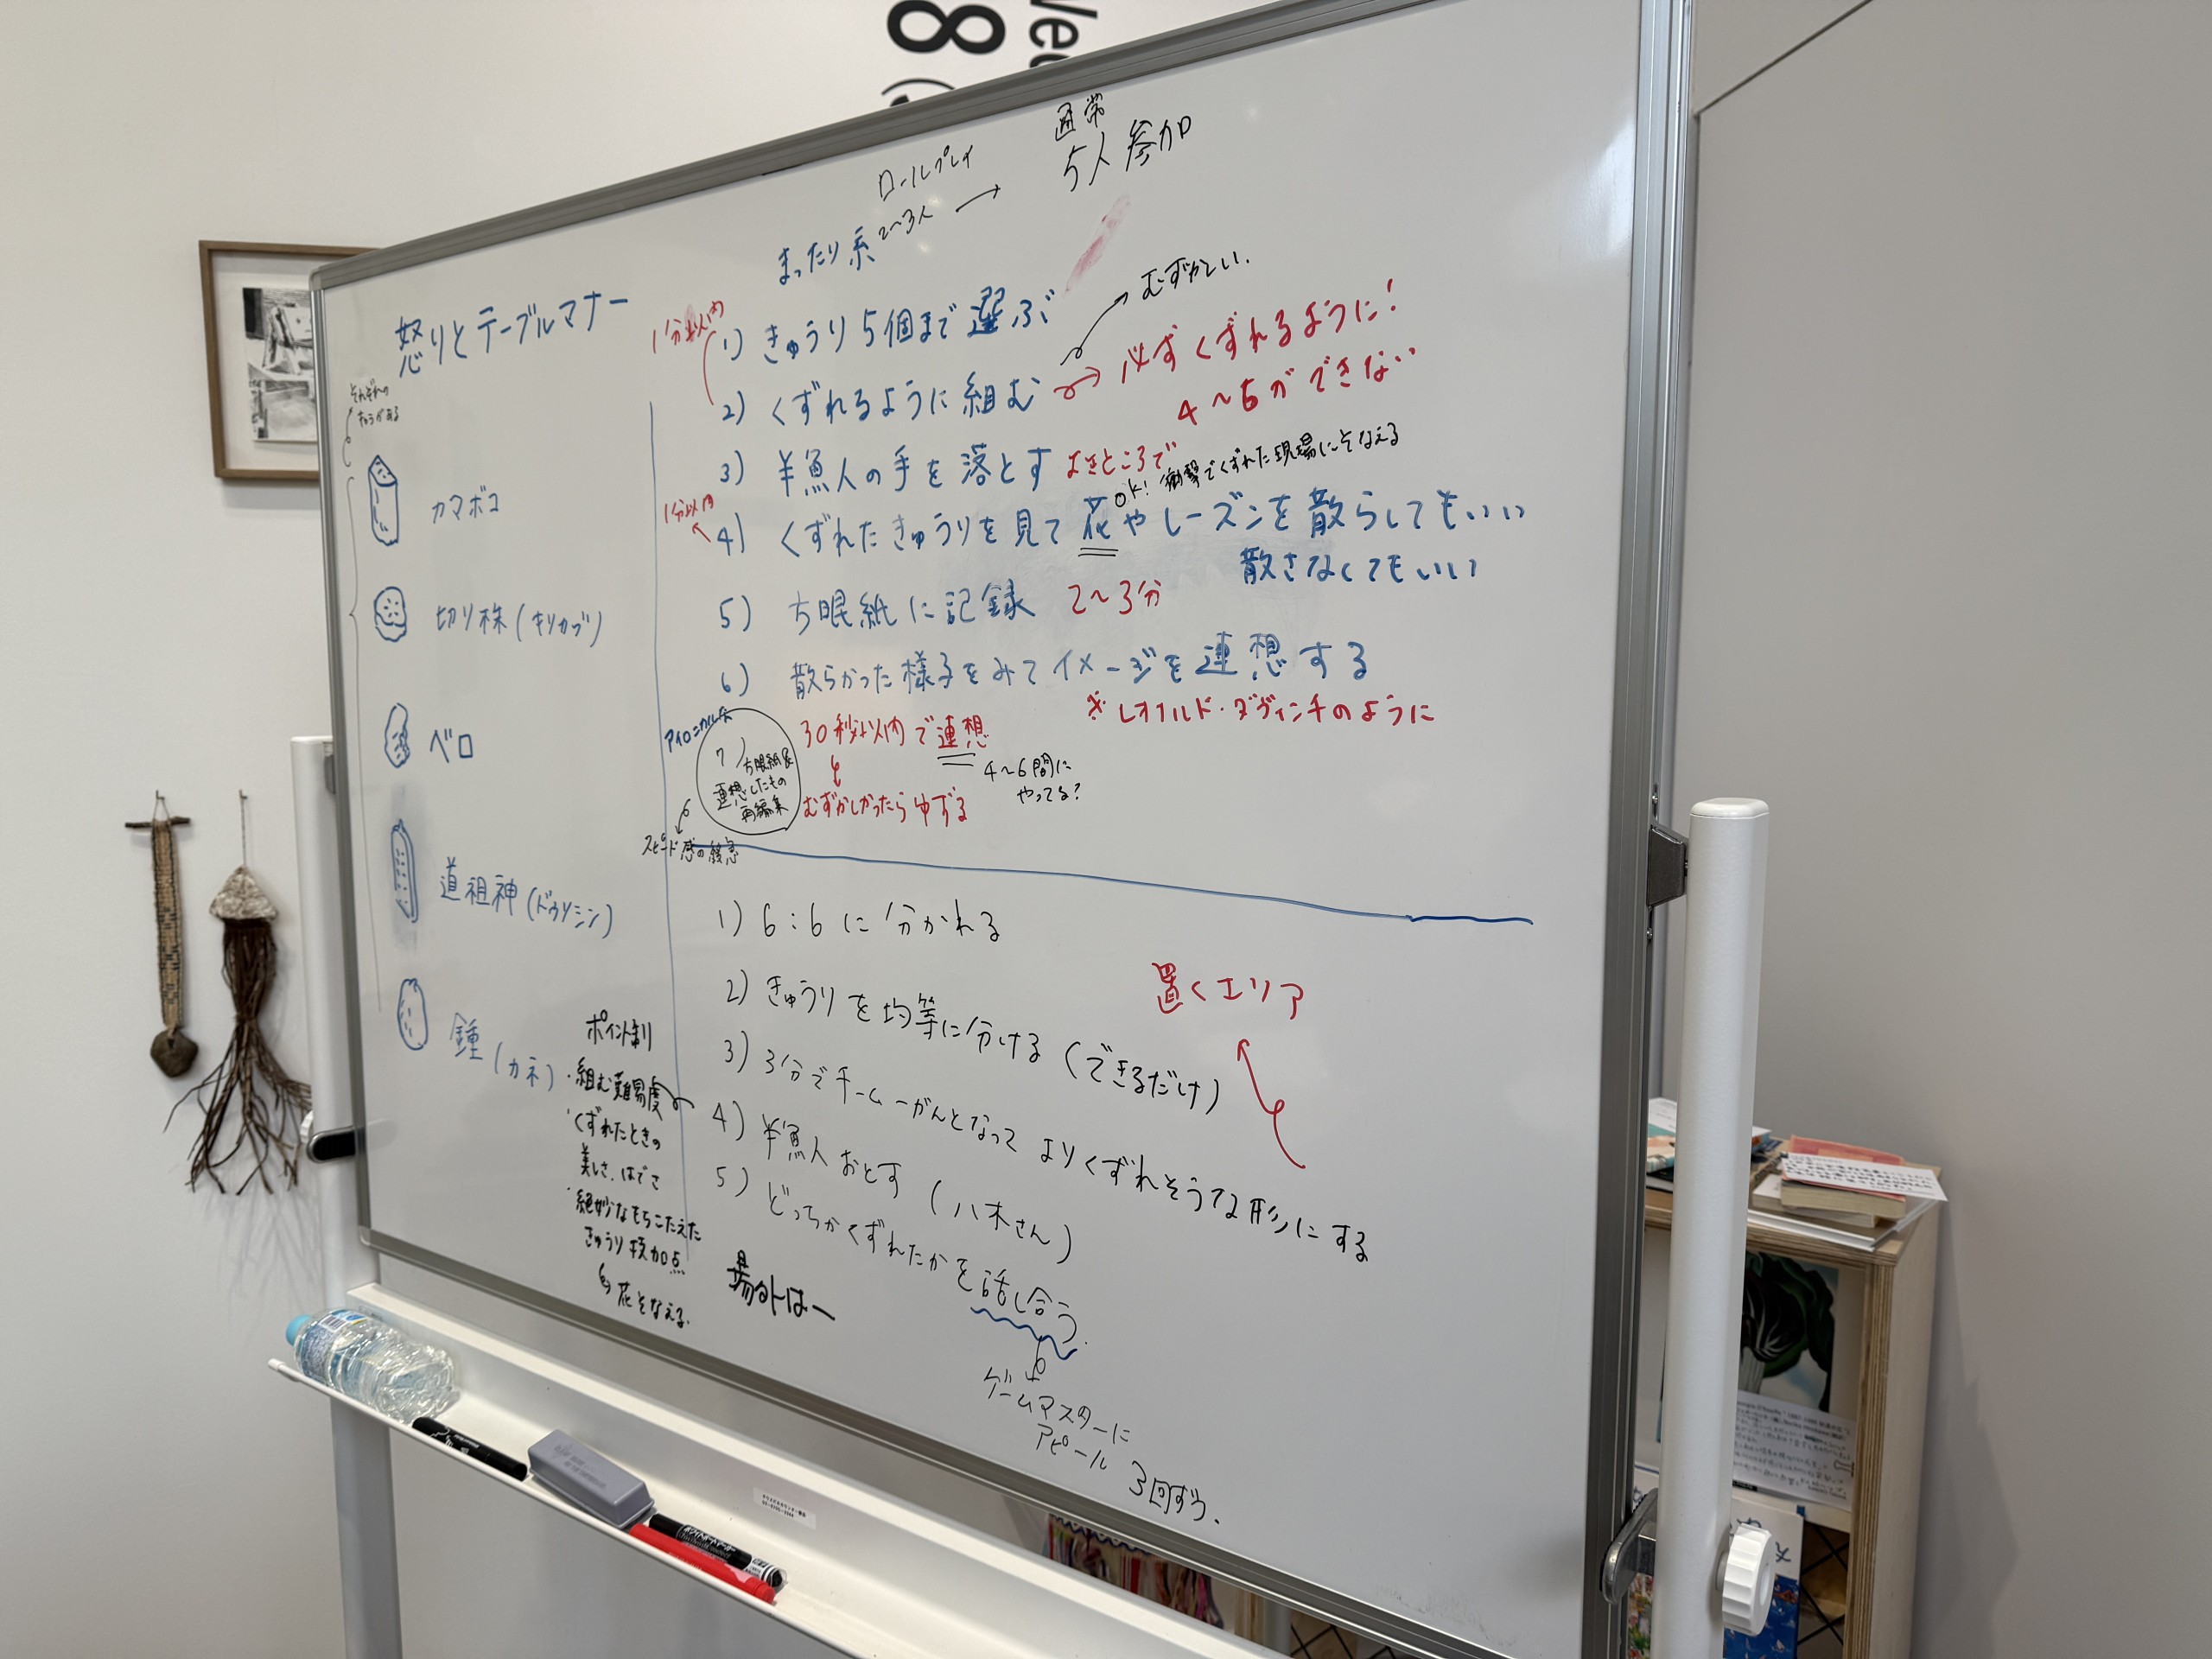 通常
5人参加
ロールプレイ
まったり系 2〜3人 →
怒りとテーブルマナー
それぞれの
カマボコ
切り株(キリカブ)
ベロ
道祖神(ドウソシン)
鐘(カネ)
1分以内
1) きゅうり5個まで選ぶ
むずかしい.
2) くずれるように組む
必ずくずれるように!
4〜6ができない
3) 半魚人の手を落とす よきところで
OK! 衝撃でくずれた現場にそなえる
1分以内
4) くずれたきゅうりを見て花やレーズンを散らしてもいい
散さなくてもいい
5) 方眼紙に記録 2〜3分
6) 散らかった様子をみてイメージを連想する
※レオナルド・ダヴィンチのように
30秒以内で連想
むずかしかったらゆずる
4〜6間に
やってる?
アイロニカルな
7) 方眼紙&
連想したもの
再編集
スピード感の緩急
1) 6:6に分かれる
2) きゅうりを均等に分ける(できるだけ)
置くエリア
3) 3分でチーム一がんとなってよりくずれそうな形にする
4) 半魚人おとす(八木さん)
5) どっちがくずれたかを話し合う.
ゲームマスターに
アピール
3回ずつ.
ポイント制
・組む難易度
・くずれたときの
美しさ、はでさ
・絶妙なもちこたえた
きゅうり技加点
花そなえる.
場外は−
8